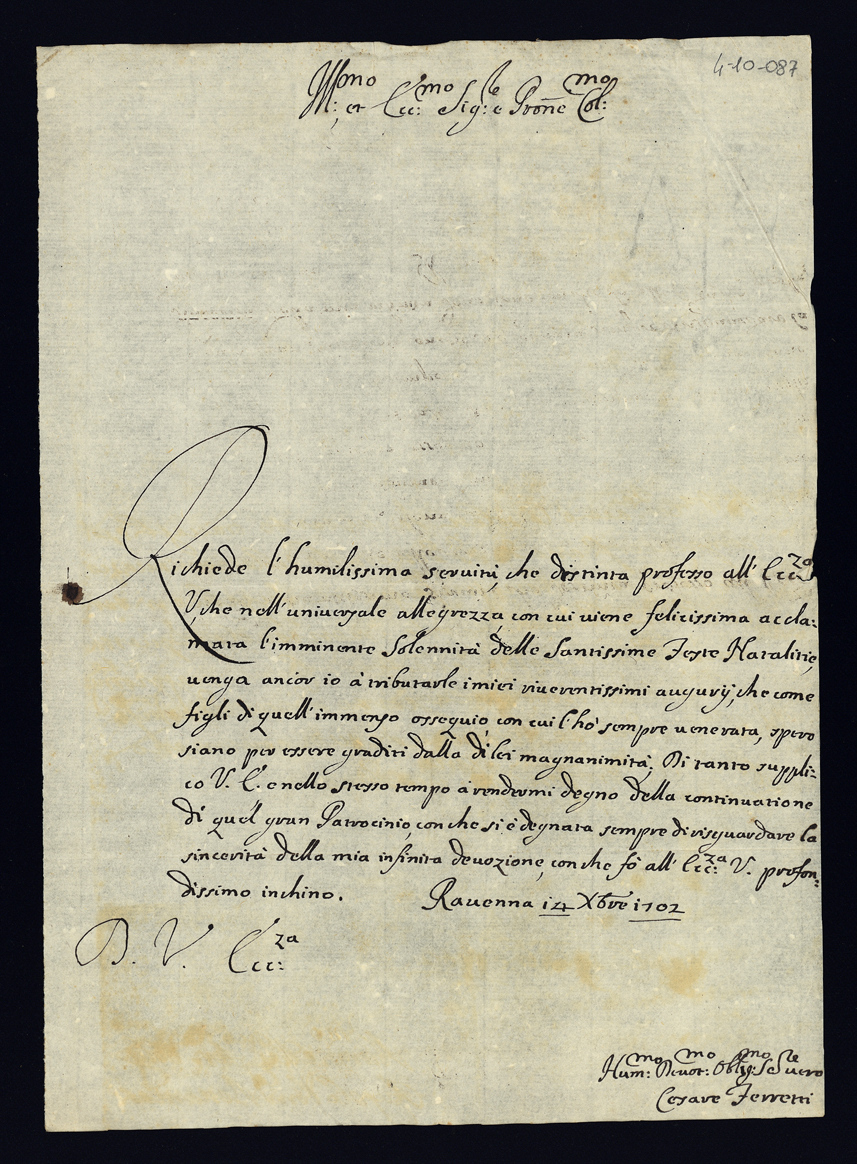 4-10-087
Ill:mo et Ecc:mo Sig:re e Pron̄e Col:mo
Richiede l'humilissima servitù, che distinta professo all' Ecc:za
V., che nell'universale allegrezza, con cui viene felicissima accla:
mata l'imminente Solennità delle Santissime Feste Natalitie,
venga ancor io à tributarle i miei riverentissimi augurÿ, che come
figli di quell'immenso ossequio, con cui l'hò sempre venerata, spero
siano per essere graditi dalla di lei magnanimità. Di tanto suppli:
co V. E. e nello stesso tempo à rendermi degno della continuatione
di quel gran Patrocinio, con che si è degnata sempre di risguardare la
sincerità della mia infinita devozione, con che fò all' Ecc:za V. profon:
dissimo inchino. Ravenna i4 Xbre i702
D. V. Ecc:za
Hum:mo Devot:mo Oblig:mo Se:re vero
Cesare Ferretti